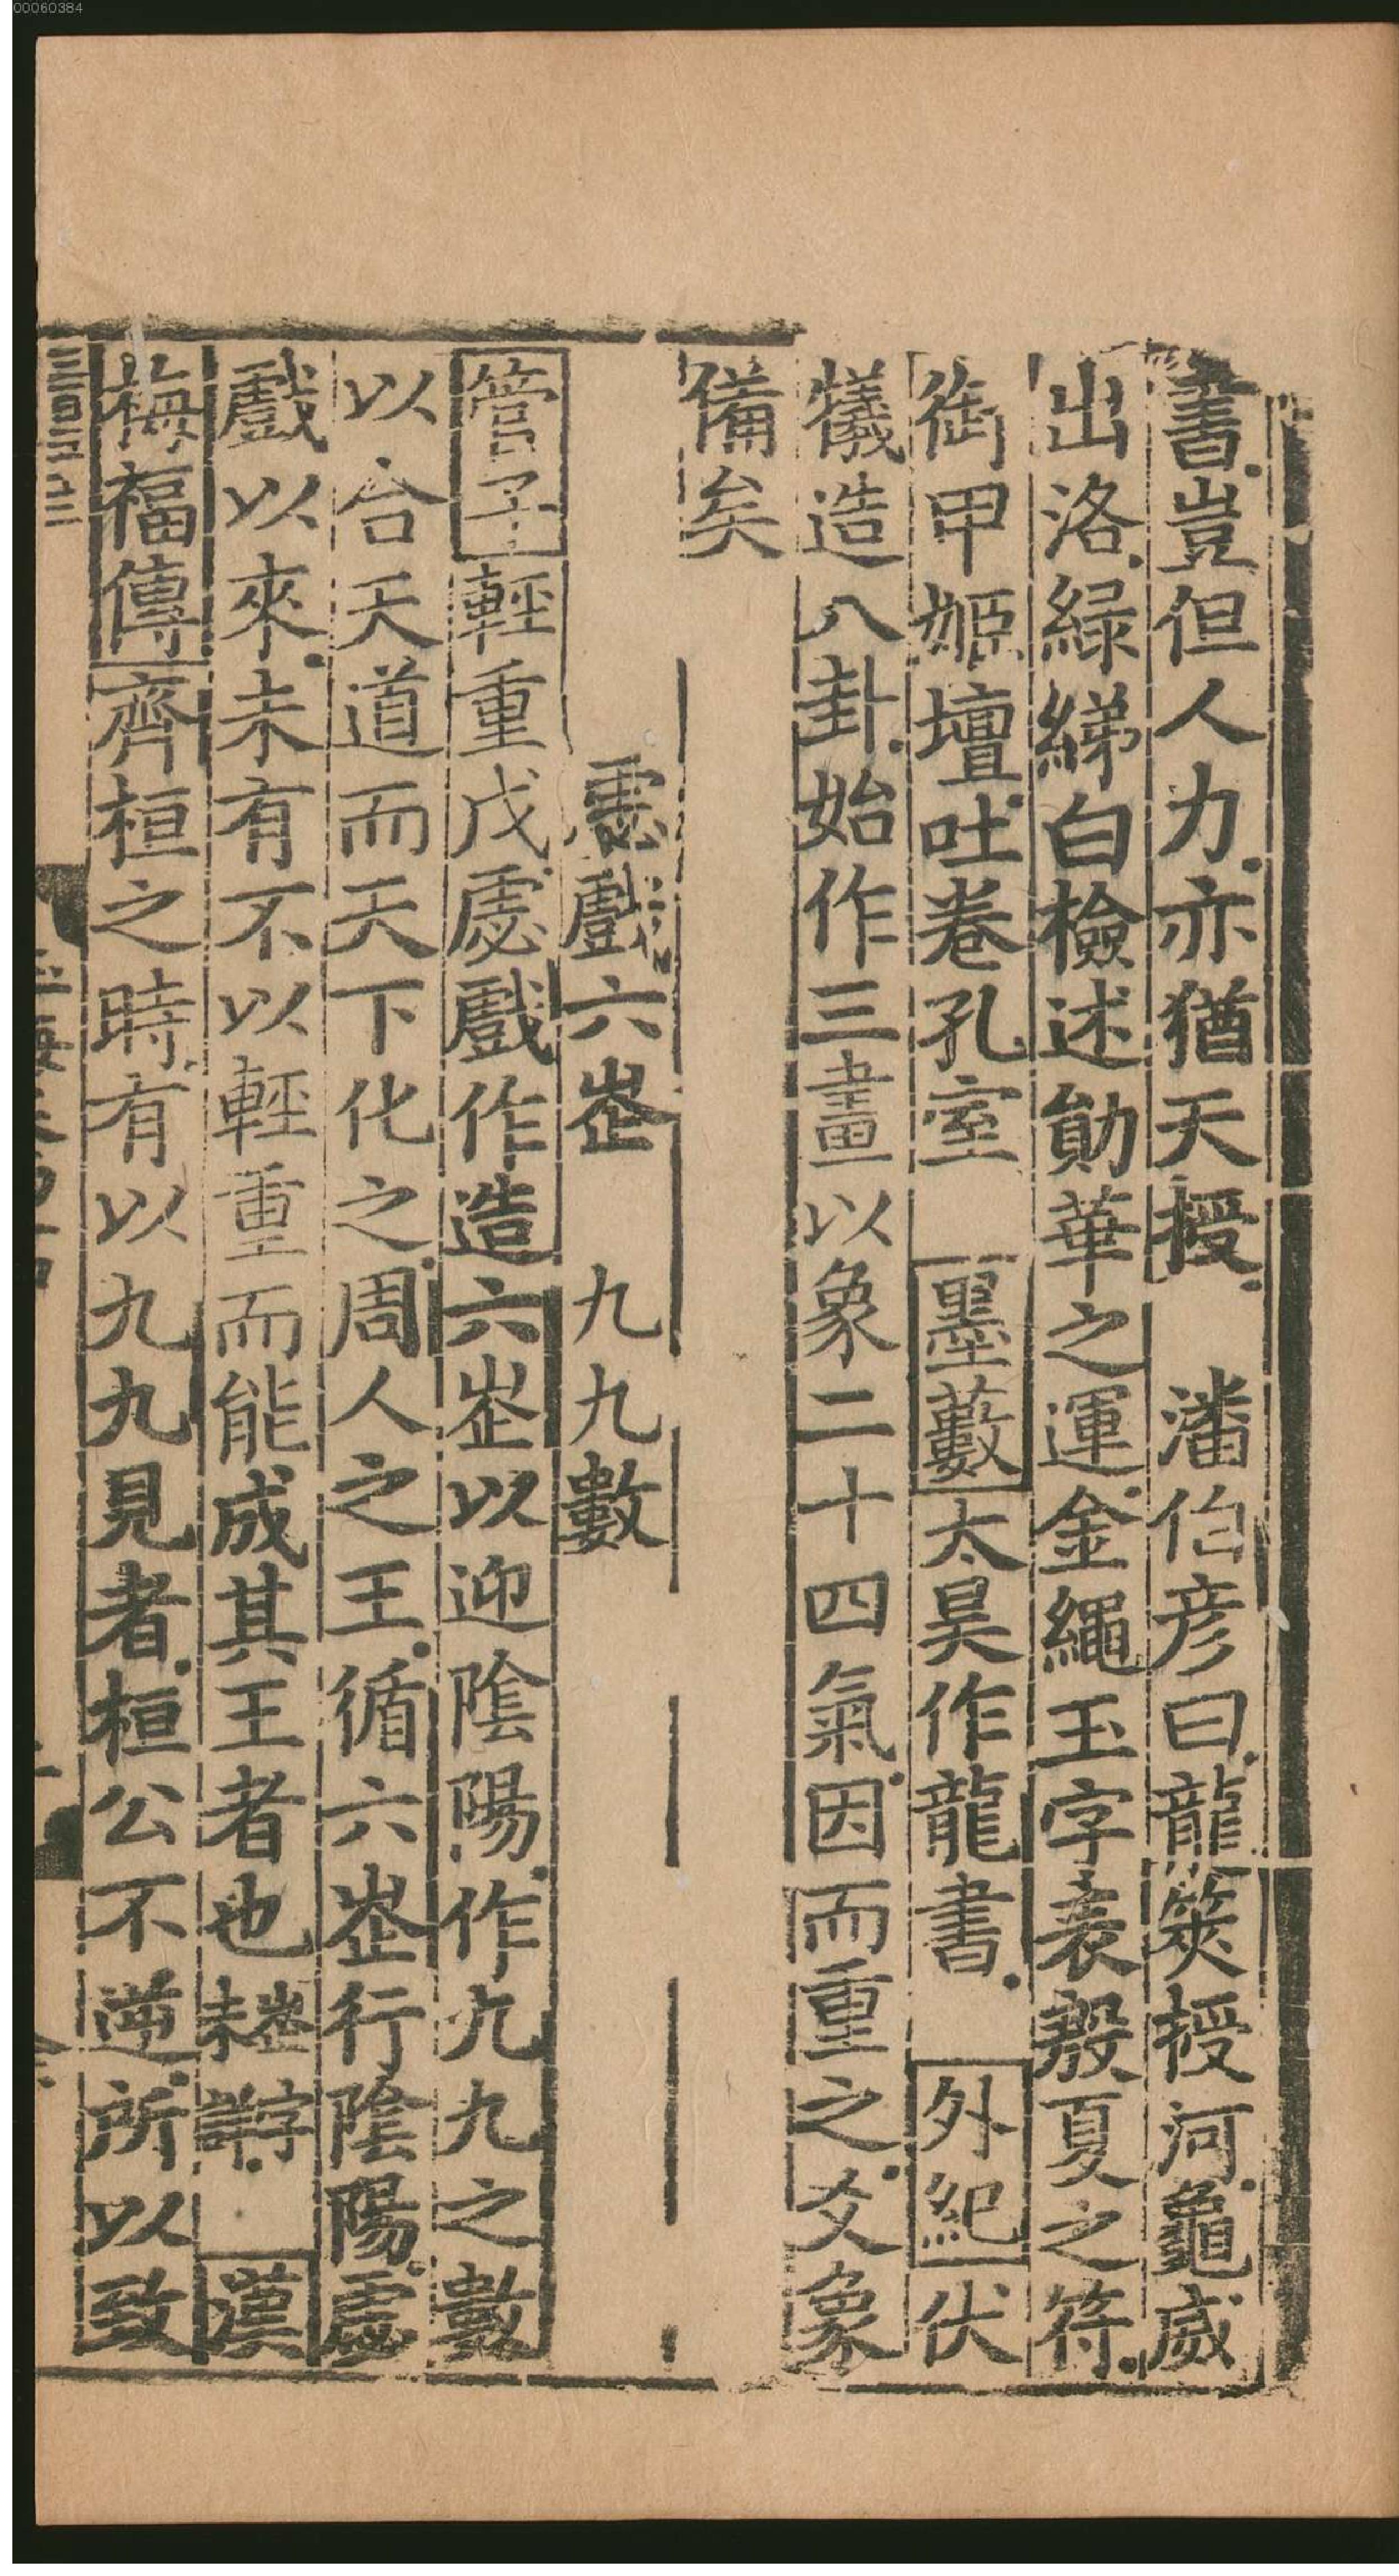 00060384
書豈但人力亦猶天授 潘伯彦曰龍筴授河龜威
出洛綠綈白檢述勛華之運金繩玉字表殷夏之符
銜甲姬壇吐卷孔室 墨藪太昊作龍書 外紀伏
犧造八卦始作三畫以象二十四氣因而重之爻象
備矣
虙戲六峜 九九數
管子輕重戊虙戲作造六峜以迎陰陽作九九之數
以合天道而天下化之周人之王循六峜行陰陽虙
戲以來未有不以輕重而能成其王者也峜字未詳 漢
梅福傳齊桓之時有以九九見者桓公不逆所以致